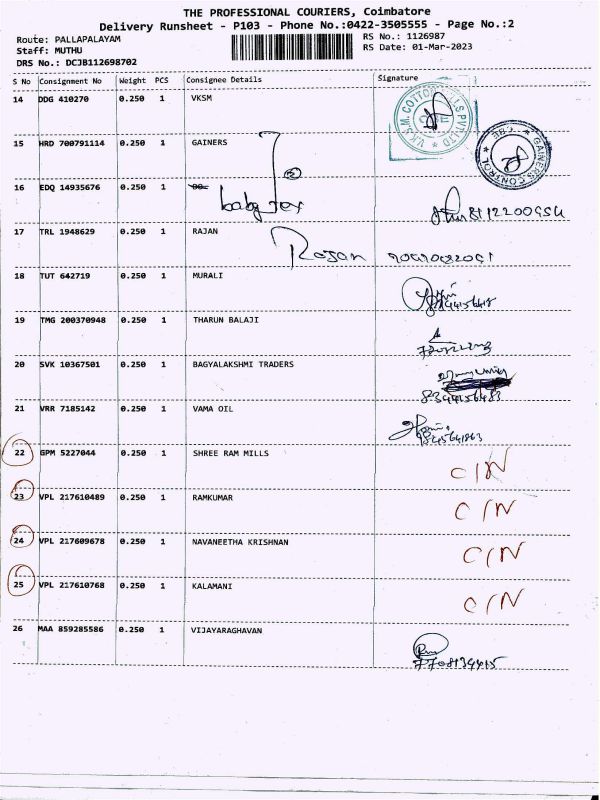 THE PROFESSIONAL COURIERS, Coimbatore
Delivery Runsheet - P103 - Phone No.:0422-3505555 - Page No.:2
Route: PALLAPALAYAM
Staff: MUTHU
DRS No.: DCJB112698702
RS No.: 1126987
RS Date: 01-Mar-2023
S No Consignment No Weight PCS Consignee Details Signature
14 DDG 410270 0.250 1 VKSM
V.K.S.M. COTTON MILLS PVT LTD
15 HRD 700791114 0.250 1 GAINERS
GAINERS CONTROL * CBE *
16 EDQ 14935676 0.250 1
baby Tex
17 TRL 1948629 0.250 1 RAJAN
Rajan
18 TUT 642719 0.250 1 MURALI
19 TMG 200370948 0.250 1 THARUN BALAJI
20 SVK 10367501 0.250 1 BAGYALAKSHMI TRADERS
8344156483
21 VRR 7185142 0.250 1 VAMA OIL
22 GPM 5227044 0.250 1 SHREE RAM MILLS C/N
23 VPL 217610489 0.250 1 RAMKUMAR C/N
24 VPL 217609678 0.250 1 NAVANEETHA KRISHNAN C/N
25 VPL 217610768 0.250 1 KALAMANI C/N
26 MAA 859285586 0.250 1 VIJAYARAGHAVAN
7708134415